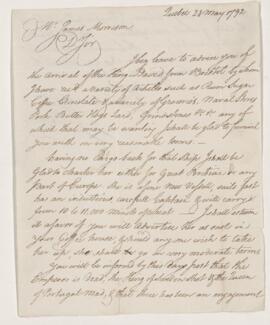 Quebec 28 May 1792
Mr. James Morrison
Sir
I beg leave to advise you of
the arrival of the Ship from Bristol by whom
I have recd a variety of Articles such as Rum Sugar
Coffee Chocolate & a variety of Groceries, Naval Stores
Pork, Butter Hogs Lard, Grindstones &c &c any of
which that may be wanting I shall be glad to furnish
you with on very reasonable terms.
having no Cargo back for that Ship I shall be
glad to Charter her either for Great Britain or any
part of Europe. She is a fine new Vessel, sails fast
has an industrious careful Captain & will carry
from 10 to 11,000 minots wheat. I shall esteem
it a favor if you will advertise her as such in
your Coffee house, & should any one wish to take
her up she shall go on very moderate terms
You will be informed by this days post that the
Emperor is dead, the King of Sweden Shot & the Queen
of Portugal mad, & that there has been an engagement